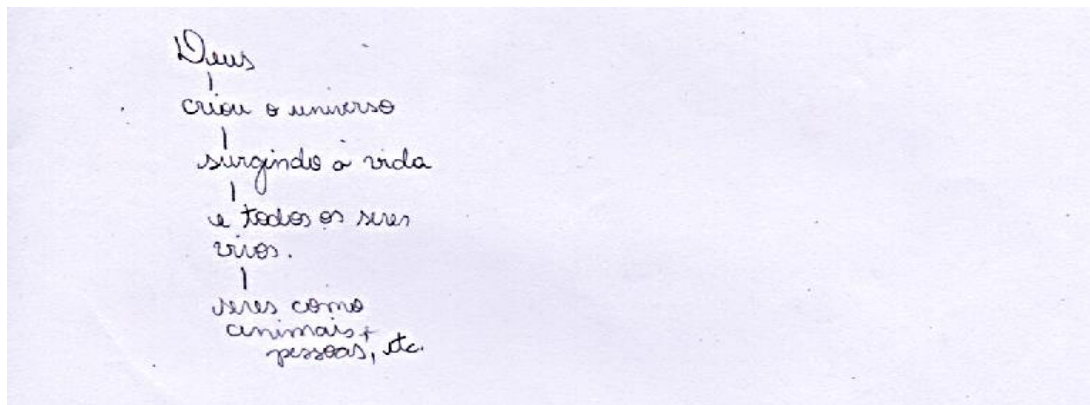 Deus
criou o universo
surgindo a vida
e todos os seres
vivos.
seres como
animais,
pessoas, etc.